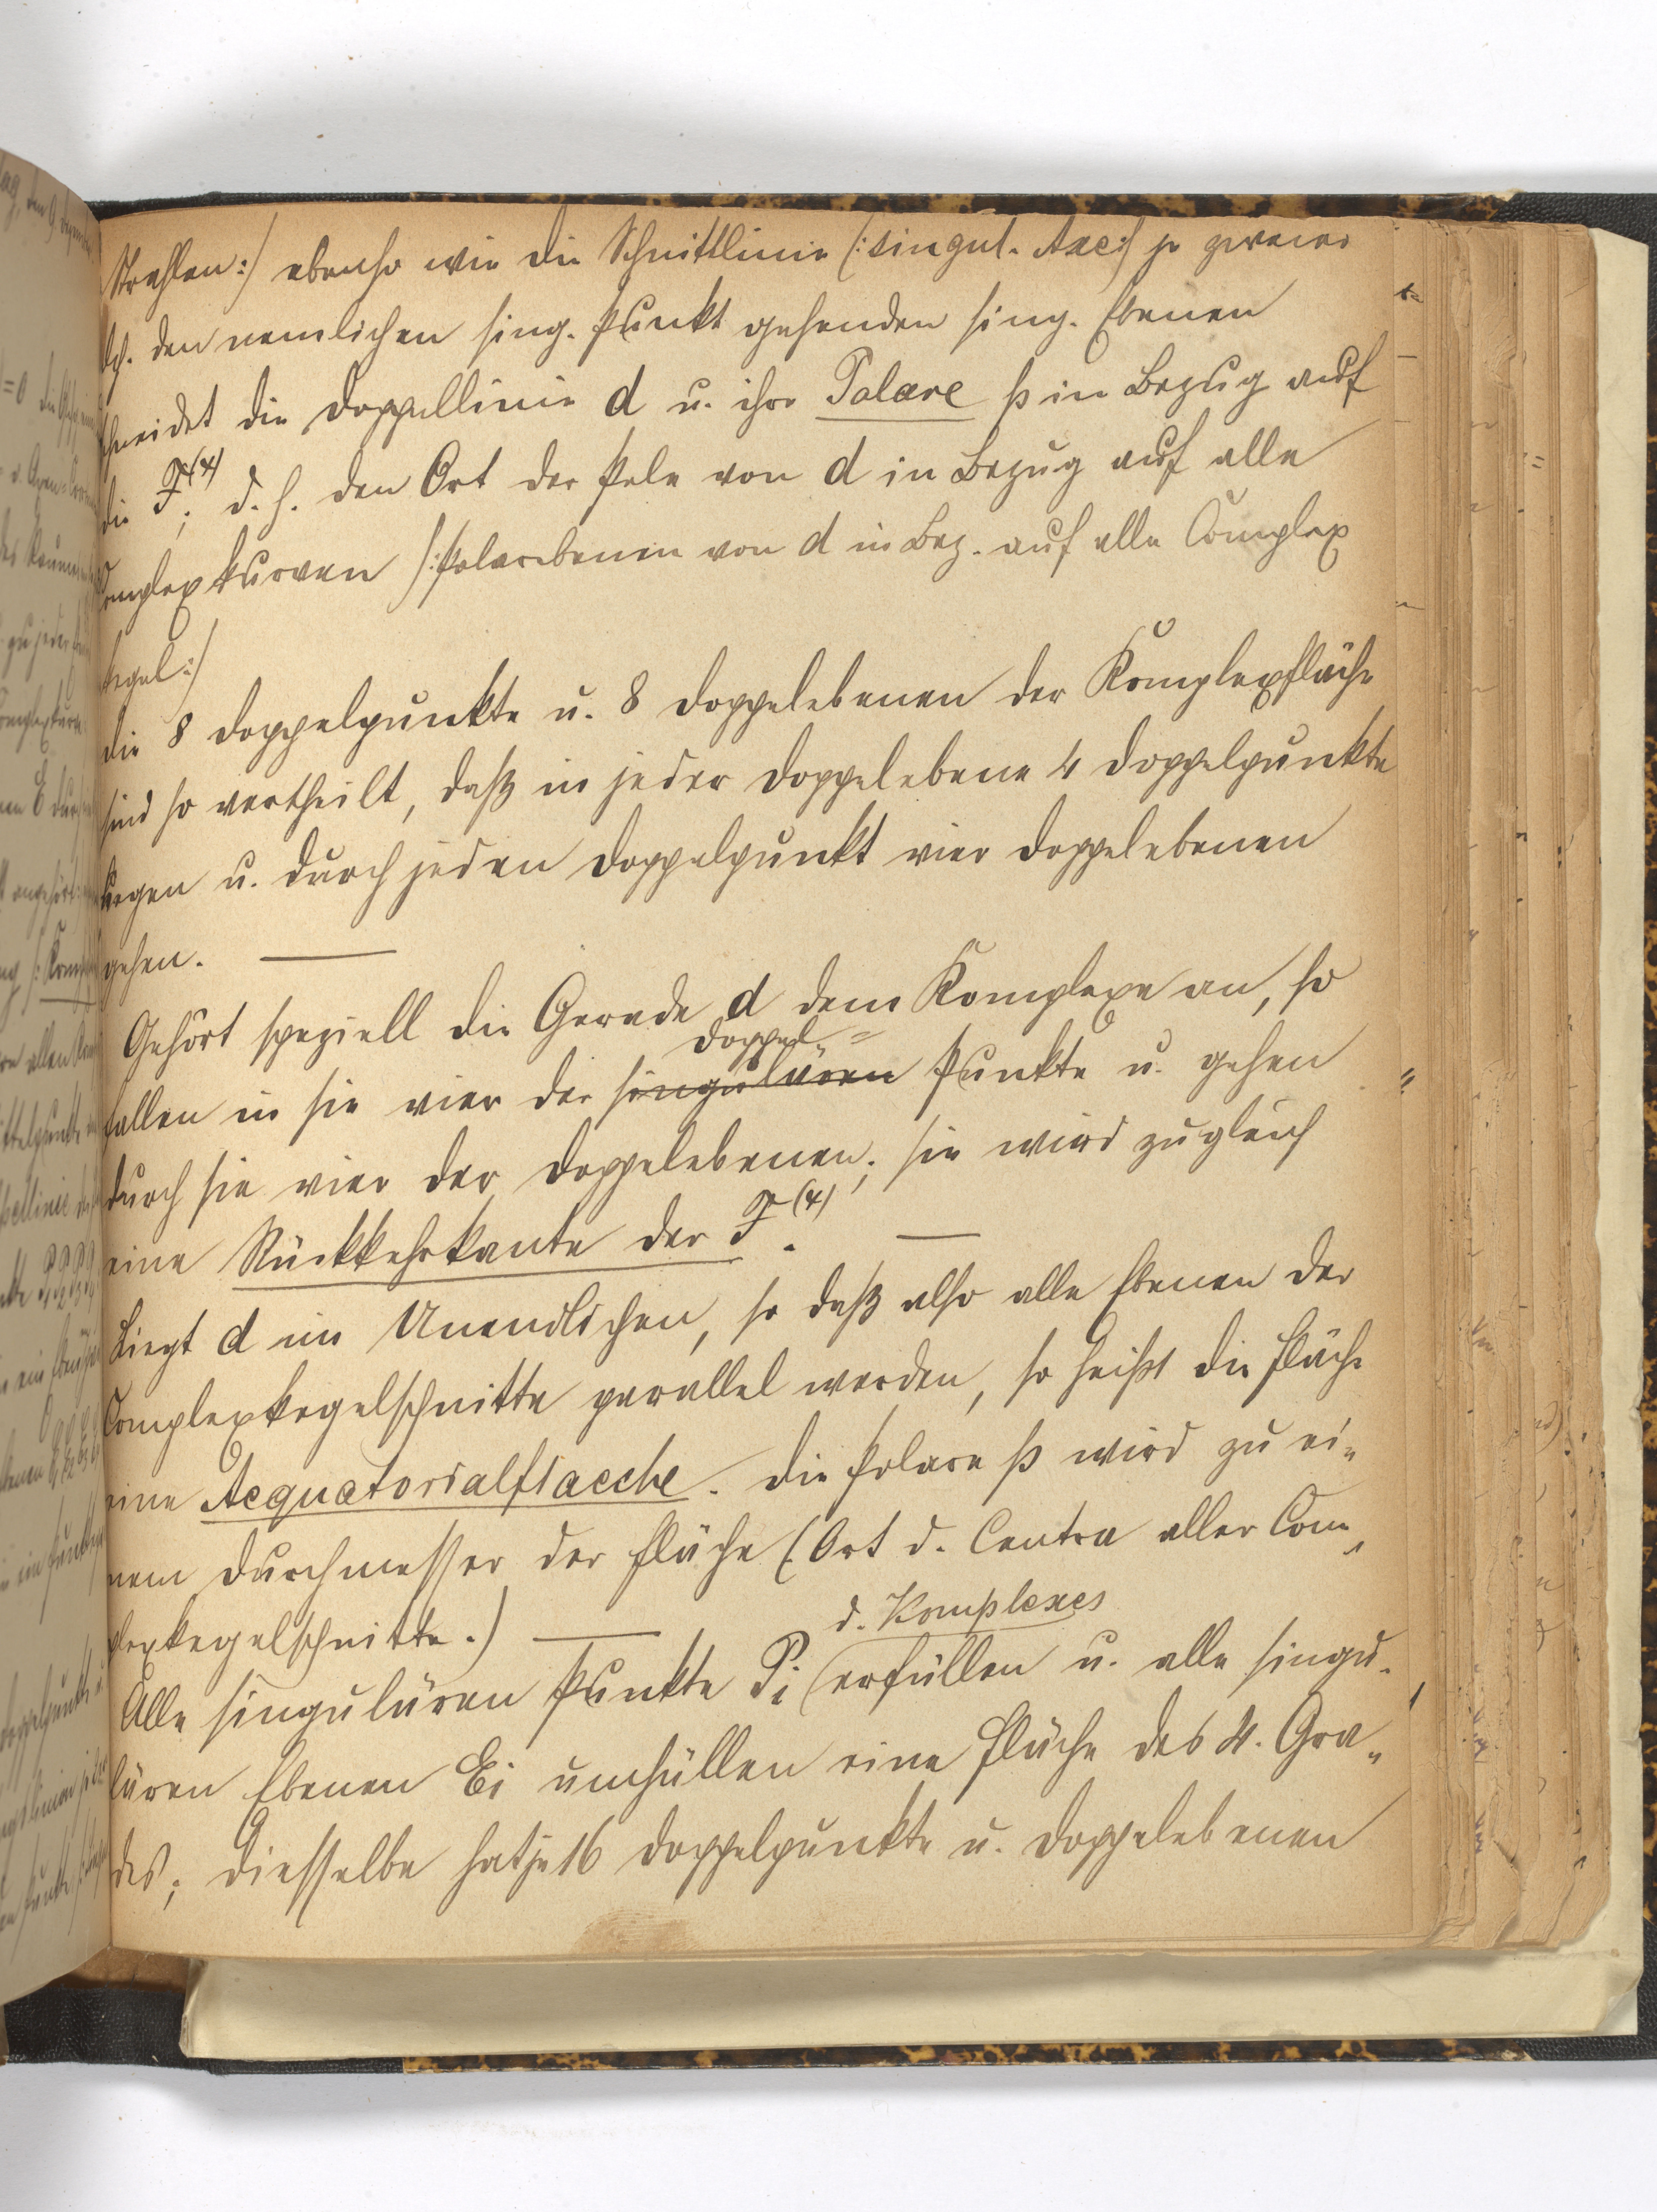 Strahlen:/ ebenso wie die Schnittlinie (:singul. Axe:/ je zweier
dch. den nemlichen sing. Punkt gehenden sing. Ebenen
schneidet die Doppellinie d u. ihre Polare p in Bezug auf
die F⁽⁴⁾; d. h. den Ort der Pole von d in Bezug auf alle
Complexkurven /:Polarebenen von d in Bez. auf alle Complex
kegel:/
die 8 Doppelpunkte u. 8 Doppelebenen der Komplexfläche
sind so vertheilt, daß in jeder Doppelebene 4 Doppelpunkte
liegen u. durch jeden Doppelpunkt vier Doppelebenen
gehen. —
Gehört speziell die Gerade d dem Komplexe an, so
Doppel=
fallen in sie vier der singulären Punkte u. gehen
durch sie vier der Doppelebenen; sie wird zugleich
eine Rückkehrkante der F⁽⁴⁾. —
Liegt d im Unendlichen, so daß also alle Ebenen der
Complexkegelschnitte parallel werden, so heißt die Fläche
eine Aequatorialflaeche. Die Polare p wird zu ei=
nem Durchmesser der Fläche (: Ort d. Centra aller Com=
plexkegelschnitte.) —
d. Komplexes
Alle singulären Punkte Pi (erfüllen u. alle singu=
lären Ebenen Ei umhüllen eine Fläche des 4. Gra=
des; diesselbe hat je 16 Doppelpunkte u. Doppelebenen